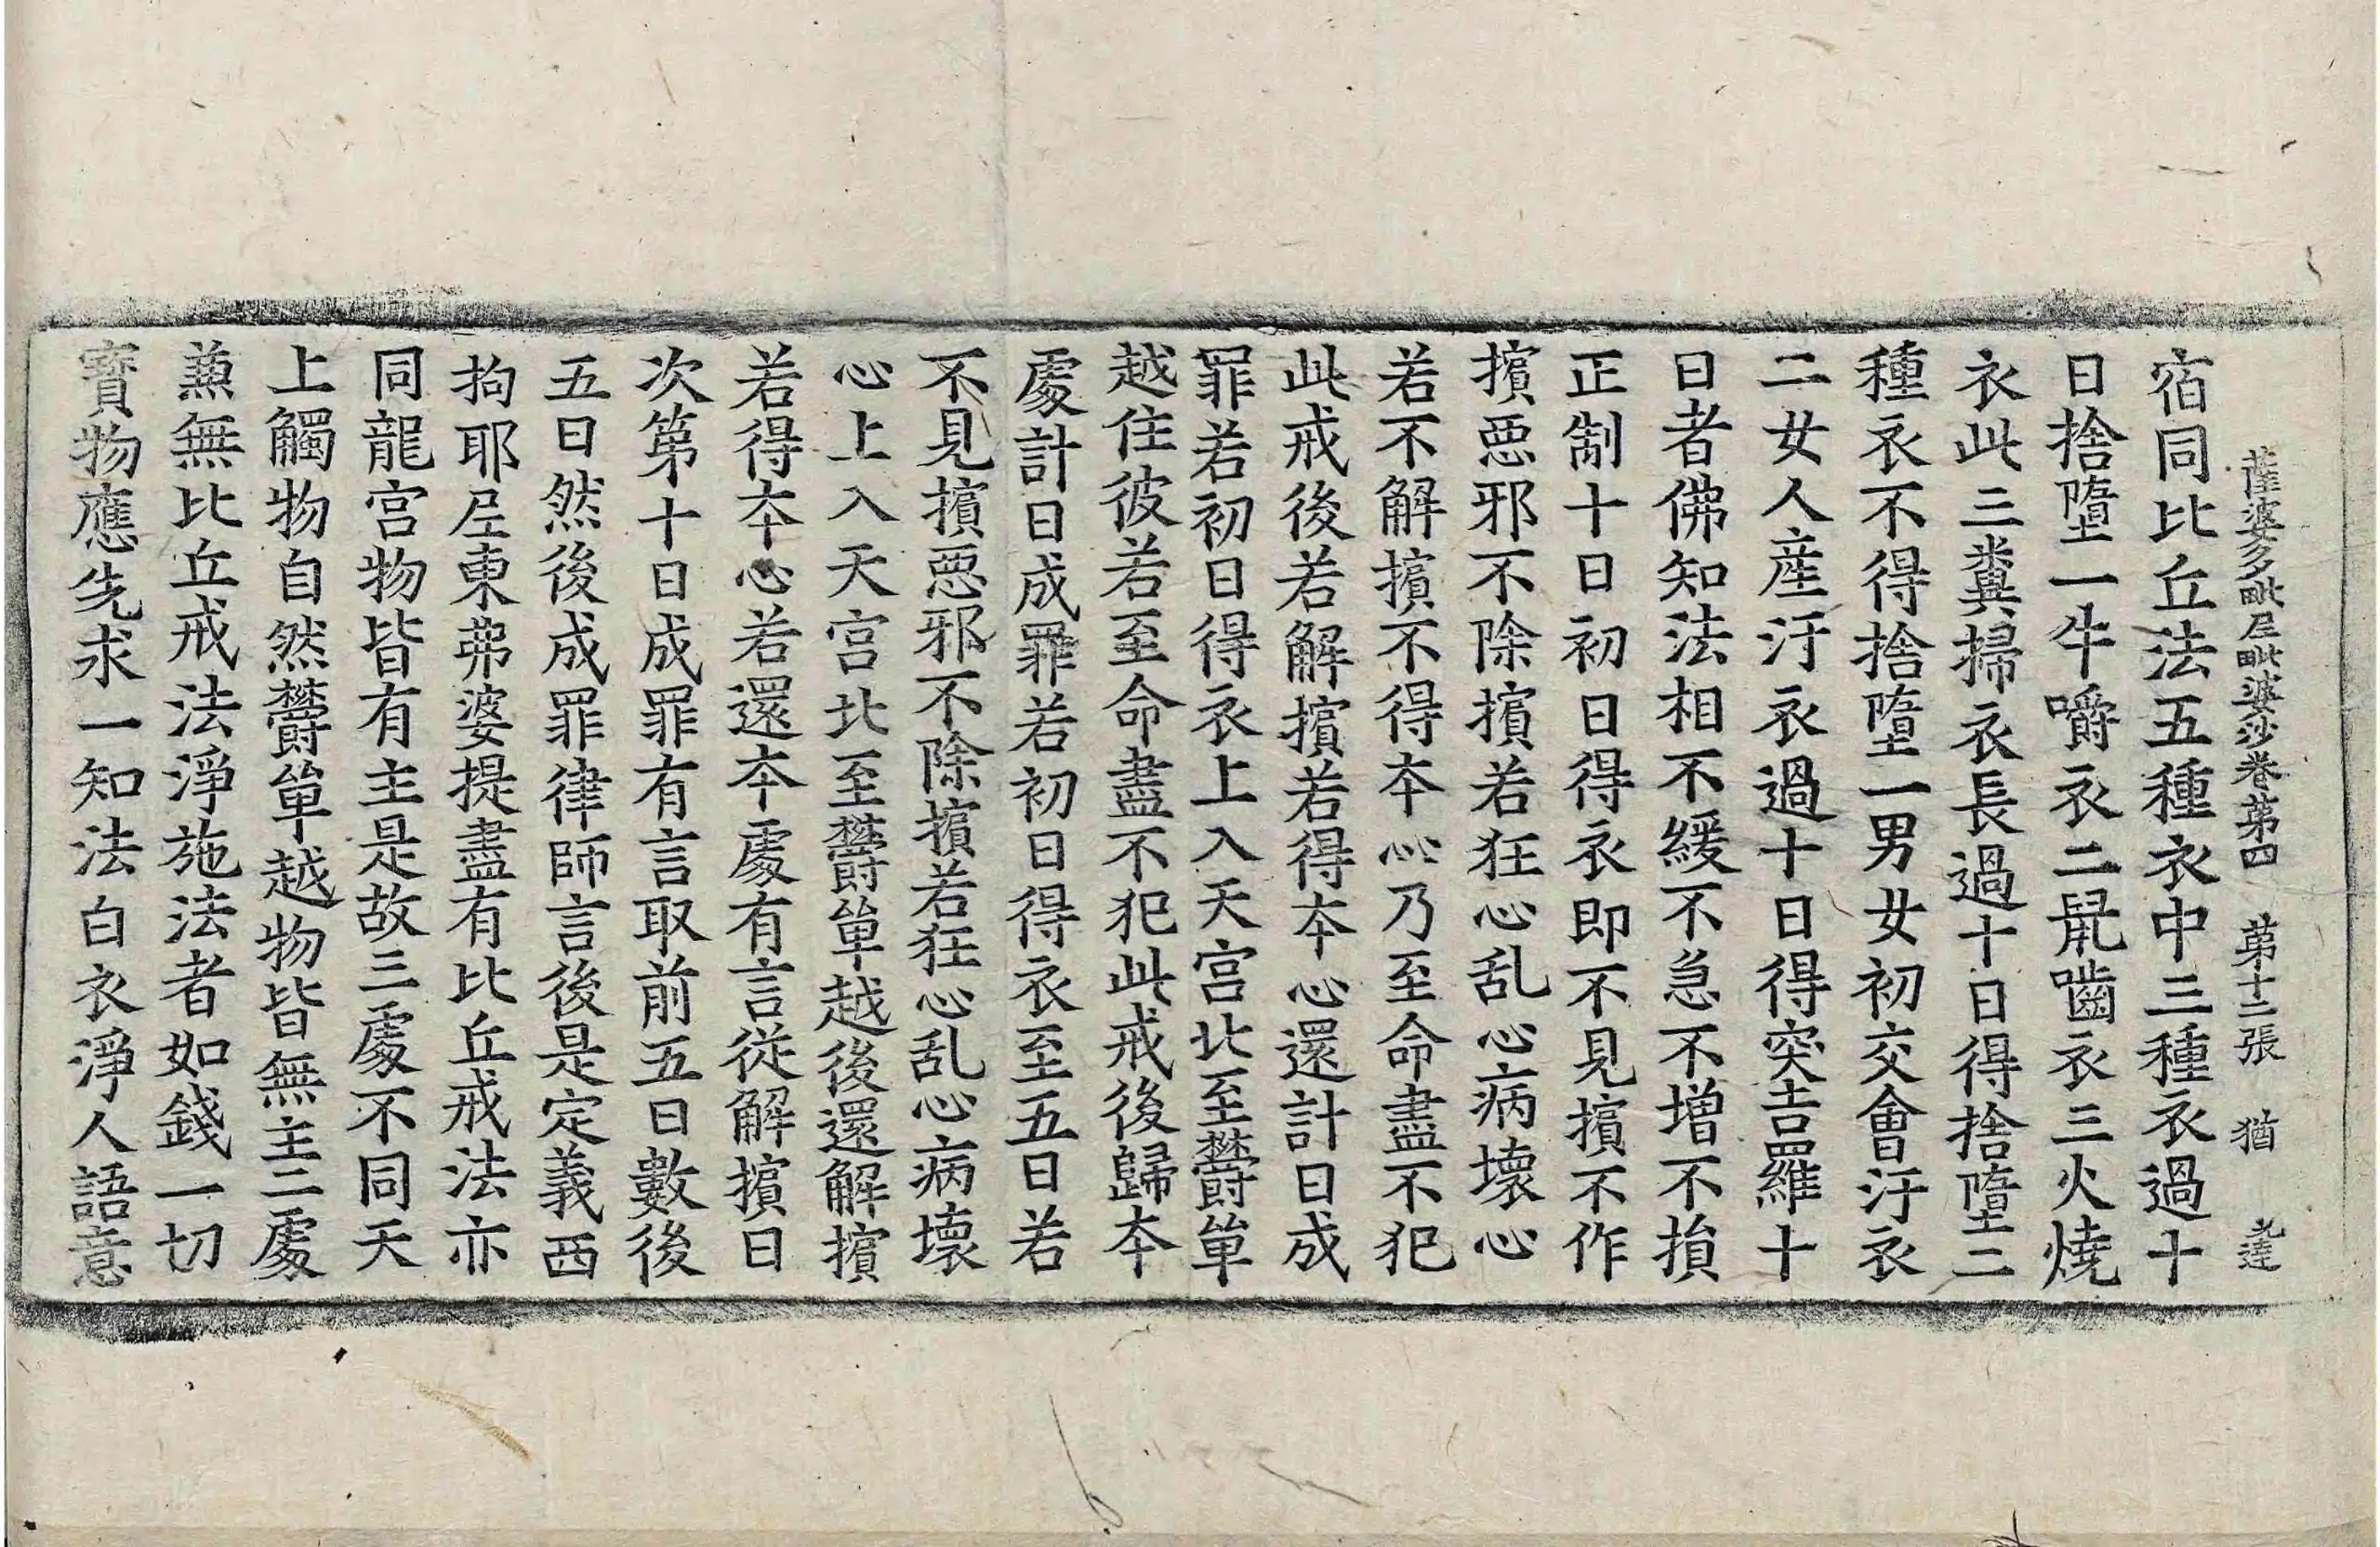 薩婆多毗尼毗婆沙卷第四 第十二張 猶
宿同比丘法五種衣中三種衣過十
日捨墮一牛嚼衣二鼠嚙衣三火燒
衣此三糞掃衣長過十日得捨墮二
種衣不得捨墮一男女初交會汙衣
二女人產汙衣過十日得突吉羅十
日者佛知法相不緩不急不增不損
正制十日初日得衣即不見擯不作
擯惡邪不除擯若狂心乱心病壞心
若不解擯不得本心乃至命盡不犯
此戒後若解擯若得本心還計日成
罪若初日得衣上入天宮北至欝單
越住彼若至命盡不犯此戒後歸本
處計日成罪若初日得衣至五日若
不見擯惡邪不除擯若狂心乱心病壞
心上入天宮北至欝單越後還解擯
若得本心若還本處有言從解擯日
次第十日成罪有言取前五日數後
五日然後成罪律師言後是定義西
拘耶尼東弗婆提盡有比丘戒法亦
同龍宮物皆有主是故三處不同天
上觸物自然欝單越物皆無主二處
兼無比丘戒法淨施法者如錢一切
寶物應先求一知法白衣淨人語意